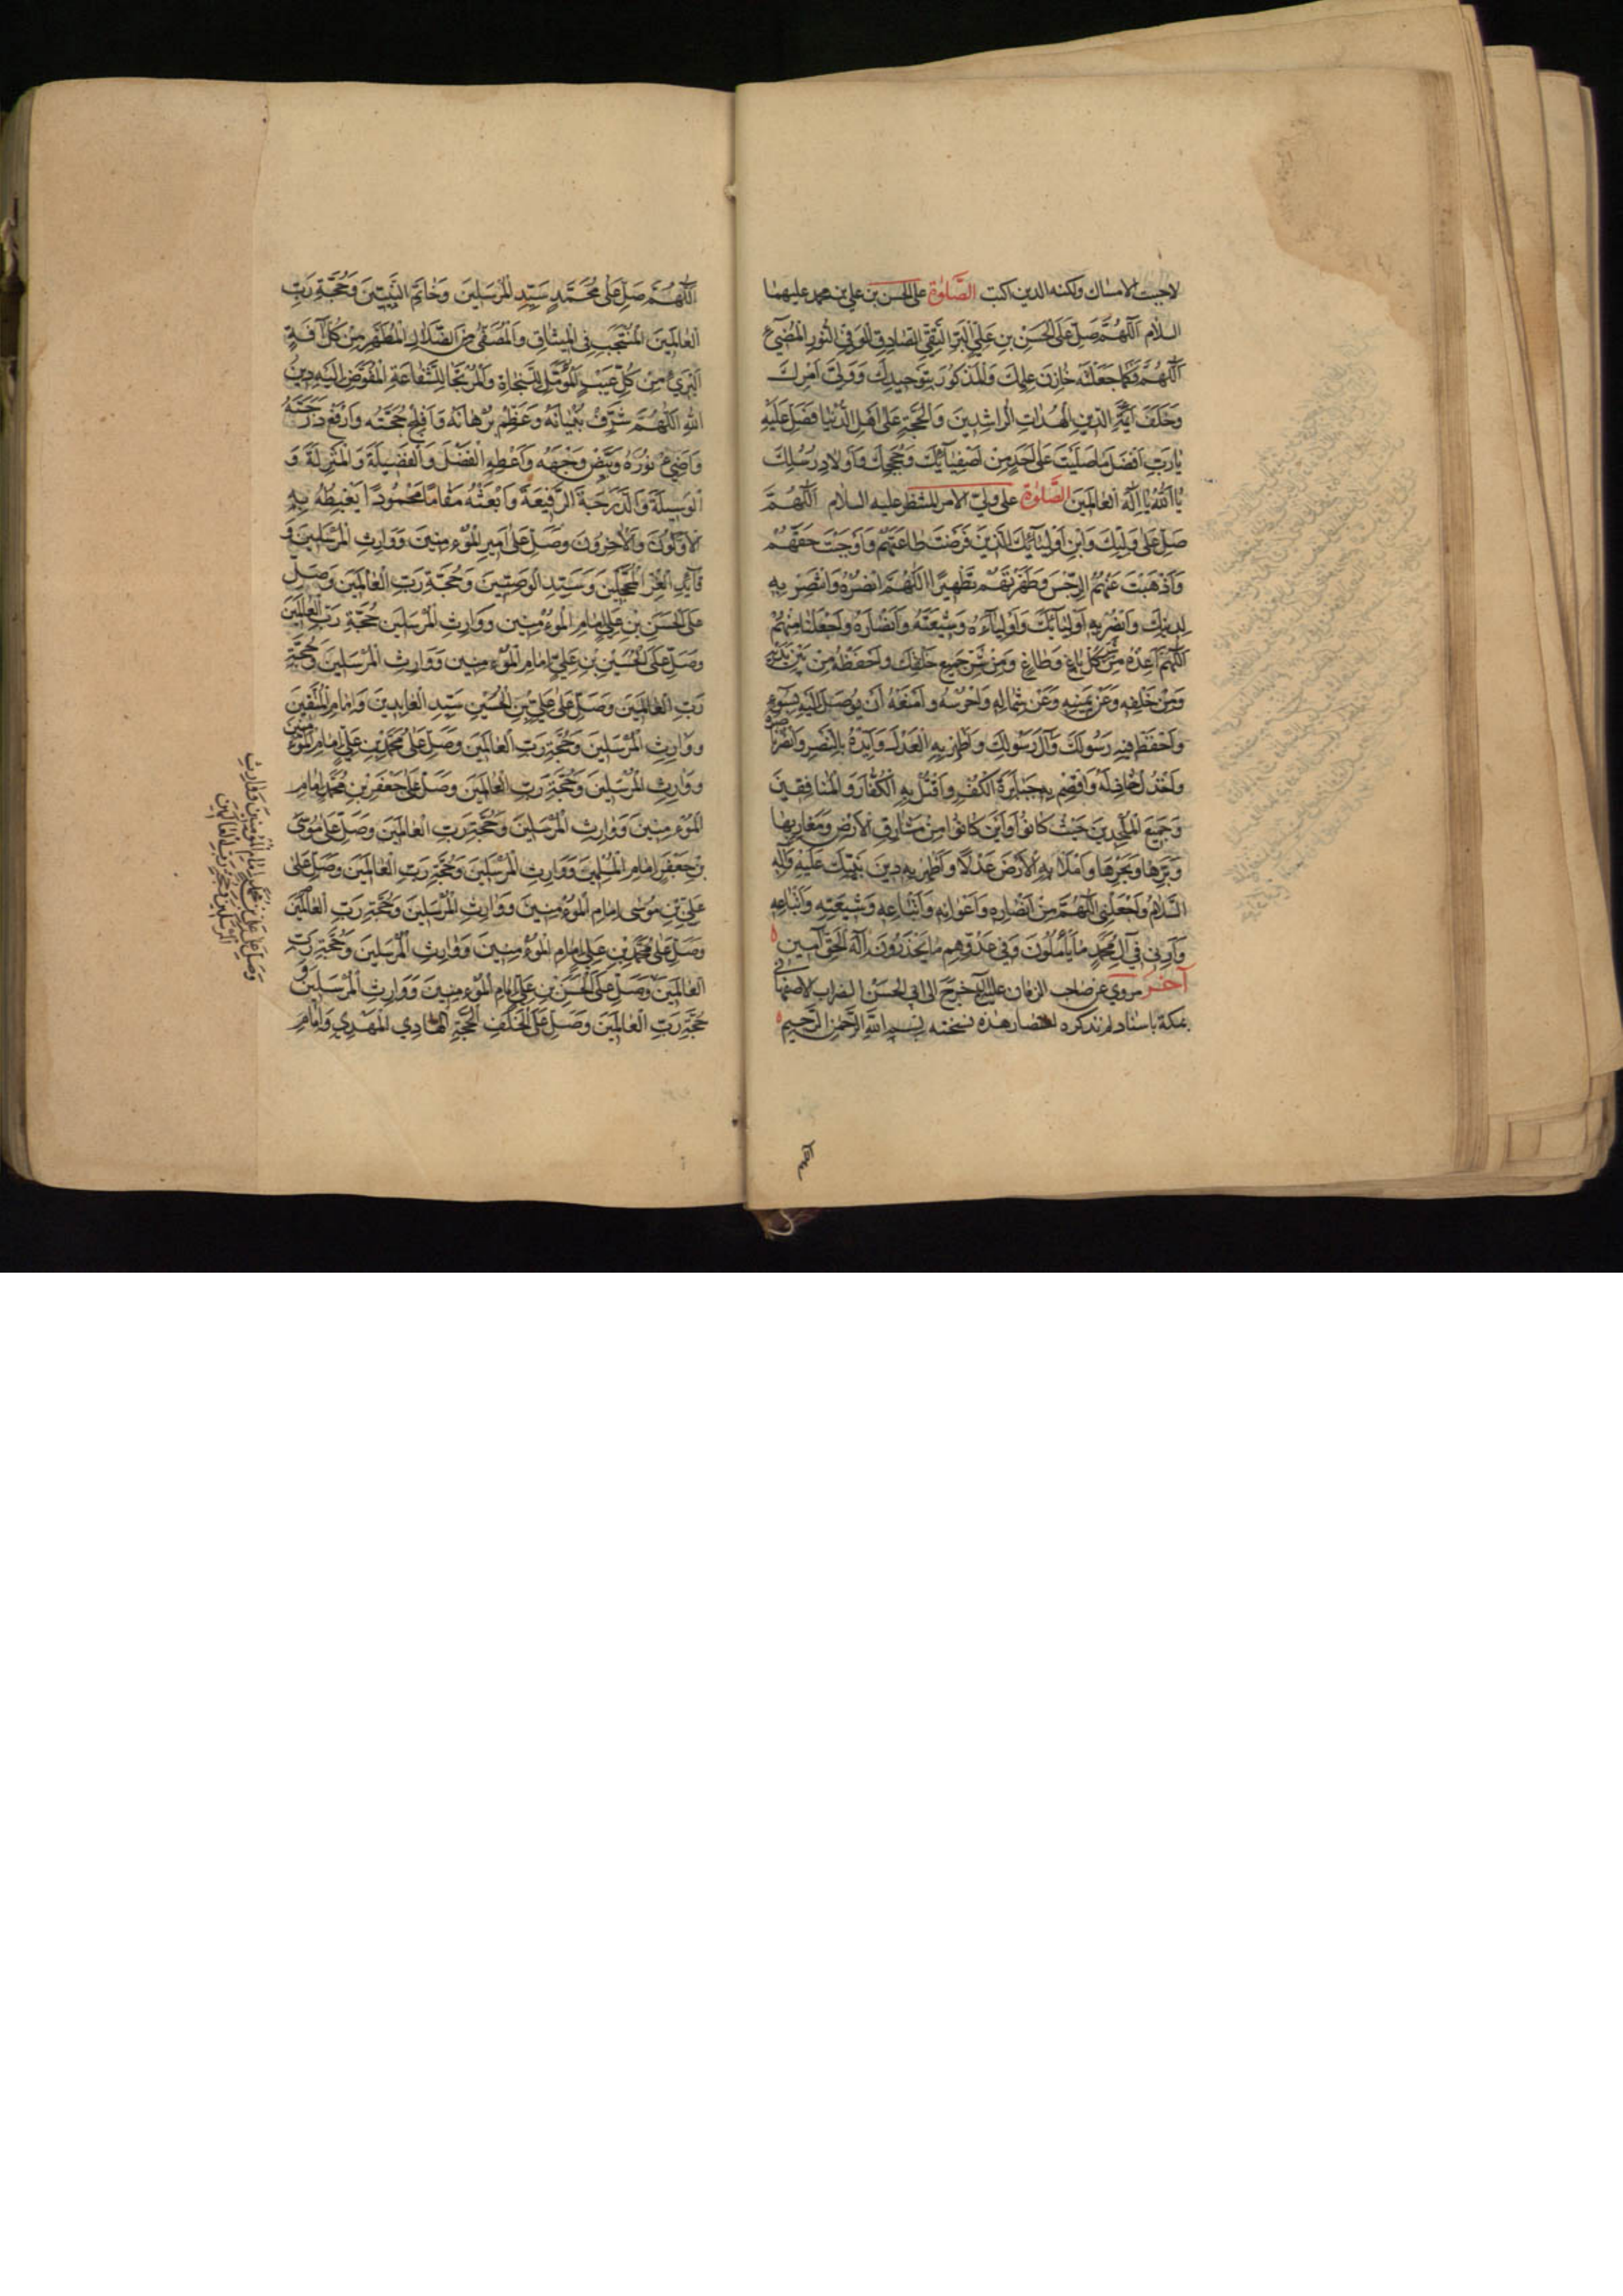 لاجبت الامساك ولكنه الدين اكتب الصَّلٰوة على الحسن بن علي بن محمد عليهما
السلام اَللّٰهُمَّ صَلِّ عَلَى الْحَسَنِ بْنِ عَلِيٍّ الْبَرِّ التَّقِيِّ الصَّادِقِ الْوَفِيِّ النُّورِ الْمُضِيءِ
اَللّٰهُمَّ وَكَمَا جَعَلْتَهُ خَازِنَ عِلْمِكَ وَالْمَذْكُورَ بِتَوْحِيدِكَ وَوَلِيَّ اَمْرِكَ
وَخَلَفَ اَئِمَّةِ الدِّينِ الْهُدَاتِ الرَّاشِدِينَ وَالْحُجَّةِ عَلٰى اَهْلِ الدُّنْيَا فَصَلِّ عَلَيْهِ
يَا رَبِّ اَفْضَلَ مَا صَلَّيْتَ عَلٰى اَحَدٍ مِنْ اَصْفِيَآئِكَ وَحُجَجِكَ وَاَوْلَادِ رُسُلِكَ
يَا اَللّٰهُ يَا اِلٰهَ الْعَالَمِينَ الصَّلٰوة على ولي الامر المنتظر عليه السلام اَللّٰهُمَّ
صَلِّ عَلٰى وَلِيِّكَ وَابْنِ اَوْلِيَآئِكَ الَّذِينَ فَرَضْتَ طَاعَتَهُمْ وَاَوْجَبْتَ حَقَّهُمْ
وَاَذْهَبْتَ عَنْهُمُ الرِّجْسَ وَطَهَّرْتَهُمْ تَطْهِيرًا اَللّٰهُمَّ انْصُرْهُ وَانْتَصِرْ بِهِ
لِدِينِكَ وَانْصُرْ بِهِ اَوْلِيَآئَكَ وَاَوْلِيَآءَهُ وَشِيعَتَهُ وَاَنْصَارَهُ وَاجْعَلْنَا مِنْهُمْ
اَللّٰهُمَّ اَعِذْهُ مِنْ شَرِّ كُلِّ بَاغٍ وَطَاغٍ وَمِنْ شَرِّ جَمِيعِ خَلْقِكَ وَاحْفَظْهُ مِنْ بَيْنِ يَدَيْهِ
وَمِنْ خَلْفِهِ وَعَنْ يَمِينِهِ وَعَنْ شِمَالِهِ وَاحْرُسْهُ وَامْنَعْهُ اَنْ يُوصَلَ اِلَيْهِ بِسُوءٍ
وَاحْفَظْ فِيهِ رَسُولَكَ وَآلَ رَسُولِكَ وَاَظْهِرْ بِهِ الْعَدْلَ وَاَيِّدْهُ بِالنَّصْرِ وَانْصُرْ نَاصِرِيهِ
وَاخْذُلْ خَاذِلَهُ وَاقْصِمْ بِهِ جَبَابِرَةَ الْكُفْرِ وَاقْتُلْ بِهِ الْكُفَّارَ وَالْمُنَافِقِينَ
وَجَمِيعَ الْمُلْحِدِينَ حَيْثُ كَانُوا وَاَيْنَ كَانُوا مِنْ مَشَارِقِ الْاَرْضِ وَمَغَارِبِهَا
وَبَرِّهَا وَبَحْرِهَا وَامْلَأْ بِهِ الْاَرْضَ عَدْلًا وَاَظْهِرْ بِهِ دِينَ نَبِيِّكَ عَلَيْهِ وَآلِهِ
السَّلَامُ وَاجْعَلْنِي اللّٰهُمَّ مِنْ اَنْصَارِهِ وَاَعْوَانِهِ وَاَتْبَاعِهِ وَشِيعَتِهِ وَاَتْبَاعِهِ
وَاَرِنِي فِي آلِ مُحَمَّدٍ مَا يَأْمُلُونَ وَفِي عَدُوِّهِمْ مَا يَحْذَرُونَ اِلٰهَ الْحَقِّ آمِينَ
آخر مروي عن صاحب الزمان عليه خرج الى ابي الحسن الضراب الاصفهاني
بمكة باسناد لم نذكره اختصارا هذه نسخته بِسْمِ اللّٰهِ الرَّحْمٰنِ الرَّحِيمِ
اَللّٰهُمَّ صَلِّ عَلٰى مُحَمَّدٍ سَيِّدِ الْمُرْسَلِينَ وَخَاتَمِ النَّبِيِّينَ وَحُجَّةِ رَبِّ
الْعَالَمِينَ الْمُنْتَجَبِ فِي الْمِيثَاقِ وَالْمُصْطَفٰى فِي الضَّلَالِ الْمُطَهَّرِ مِنْ كُلِّ آفَةٍ
الْبَرِيءِ مِنْ كُلِّ عَيْبٍ الْمُؤَمَّلِ لِلنَّجَاةِ وَالْمُرْتَجَا لِلشَّفَاعَةِ الْمُفَوَّضِ اِلَيْهِ دِينُ
اللّٰهِ اَللّٰهُمَّ شَرِّفْ بُنْيَانَهُ وَعَظِّمْ بُرْهَانَهُ وَاَفْلِجْ حُجَّتَهُ وَارْفَعْ دَرَجَتَهُ
وَاَضِيءْ نُورَهُ وَبَيِّضْ وَجْهَهُ وَاَعْطِهِ الْفَضْلَ وَالْفَضِيلَةَ وَالْمَنْزِلَةَ وَ
الْوَسِيلَةَ وَالدَّرَجَةَ الرَّفِيعَةَ وَابْعَثْهُ مَقَامًا مَحْمُودًا يَغْبِطُهُ بِهِ
الْاَوَّلُونَ وَالْآخِرُونَ وَصَلِّ عَلٰى اَمِيرِ الْمُؤْمِنِينَ وَوَارِثِ الْمُرْسَلِينَ وَ
قَآئِدِ الْغُرِّ الْمُحَجَّلِينَ وَسَيِّدِ الْوَصِيِّينَ وَحُجَّةِ رَبِّ الْعَالَمِينَ وَصَلِّ
عَلَى الْحَسَنِ بْنِ عَلِيٍّ اِمَامِ الْمُؤْمِنِينَ وَوَارِثِ الْمُرْسَلِينَ حُجَّةِ رَبِّ الْعَالَمِينَ
وَصَلِّ عَلَى الْحُسَيْنِ بْنِ عَلِيٍّ اِمَامِ الْمُؤْمِنِينَ وَوَارِثِ الْمُرْسَلِينَ وَحُجَّةِ
رَبِّ الْعَالَمِينَ وَصَلِّ عَلٰى عَلِيِّ بْنِ الْحُسَيْنِ سَيِّدِ الْعَابِدِينَ وَاِمَامِ الْمُتَّقِينَ
وَوَارِثِ الْمُرْسَلِينَ وَحُجَّةِ رَبِّ الْعَالَمِينَ وَصَلِّ عَلٰى مُحَمَّدِ بْنِ عَلِيٍّ اِمَامِ الْمُؤْمِنِينَ
وَوَارِثِ الْمُرْسَلِينَ وَحُجَّةِ رَبِّ الْعَالَمِينَ وَصَلِّ عَلٰى جَعْفَرِ بْنِ مُحَمَّدٍ اِمَامِ
الْمُؤْمِنِينَ وَوَارِثِ الْمُرْسَلِينَ وَحُجَّةِ رَبِّ الْعَالَمِينَ وَصَلِّ عَلٰى مُوسَى
بْنِ جَعْفَرٍ اِمَامِ الْمُسْلِمِينَ وَوَارِثِ الْمُرْسَلِينَ وَحُجَّةِ رَبِّ الْعَالَمِينَ وَصَلِّ عَلٰى
عَلِيِّ بْنِ مُوسٰى اِمَامِ الْمُؤْمِنِينَ وَوَارِثِ الْمُرْسَلِينَ وَحُجَّةِ رَبِّ الْعَالَمِينَ
وَصَلِّ عَلٰى مُحَمَّدِ بْنِ عَلِيٍّ اِمَامِ الْمُؤْمِنِينَ وَوَارِثِ الْمُرْسَلِينَ وَحُجَّةِ رَبِّ
الْعَالَمِينَ وَصَلِّ عَلَى الْحَسَنِ بْنِ عَلِيٍّ اِمَامِ الْمُؤْمِنِينَ وَوَارِثِ الْمُرْسَلِينَ وَ
حُجَّةِ رَبِّ الْعَالَمِينَ وَصَلِّ عَلَى الْخَلَفِ الْحُجَّةِ الْهَادِي الْمَهْدِيِّ وَاِمَامِ
وَصَلِّ عَلٰى عَلِيِّ بْنِ مُحَمَّدٍ اِمَامِ الْمُؤْمِنِينَ وَوَارِثِ
الْمُرْسَلِينَ وَحُجَّةِ رَبِّ الْعَالَمِينَ